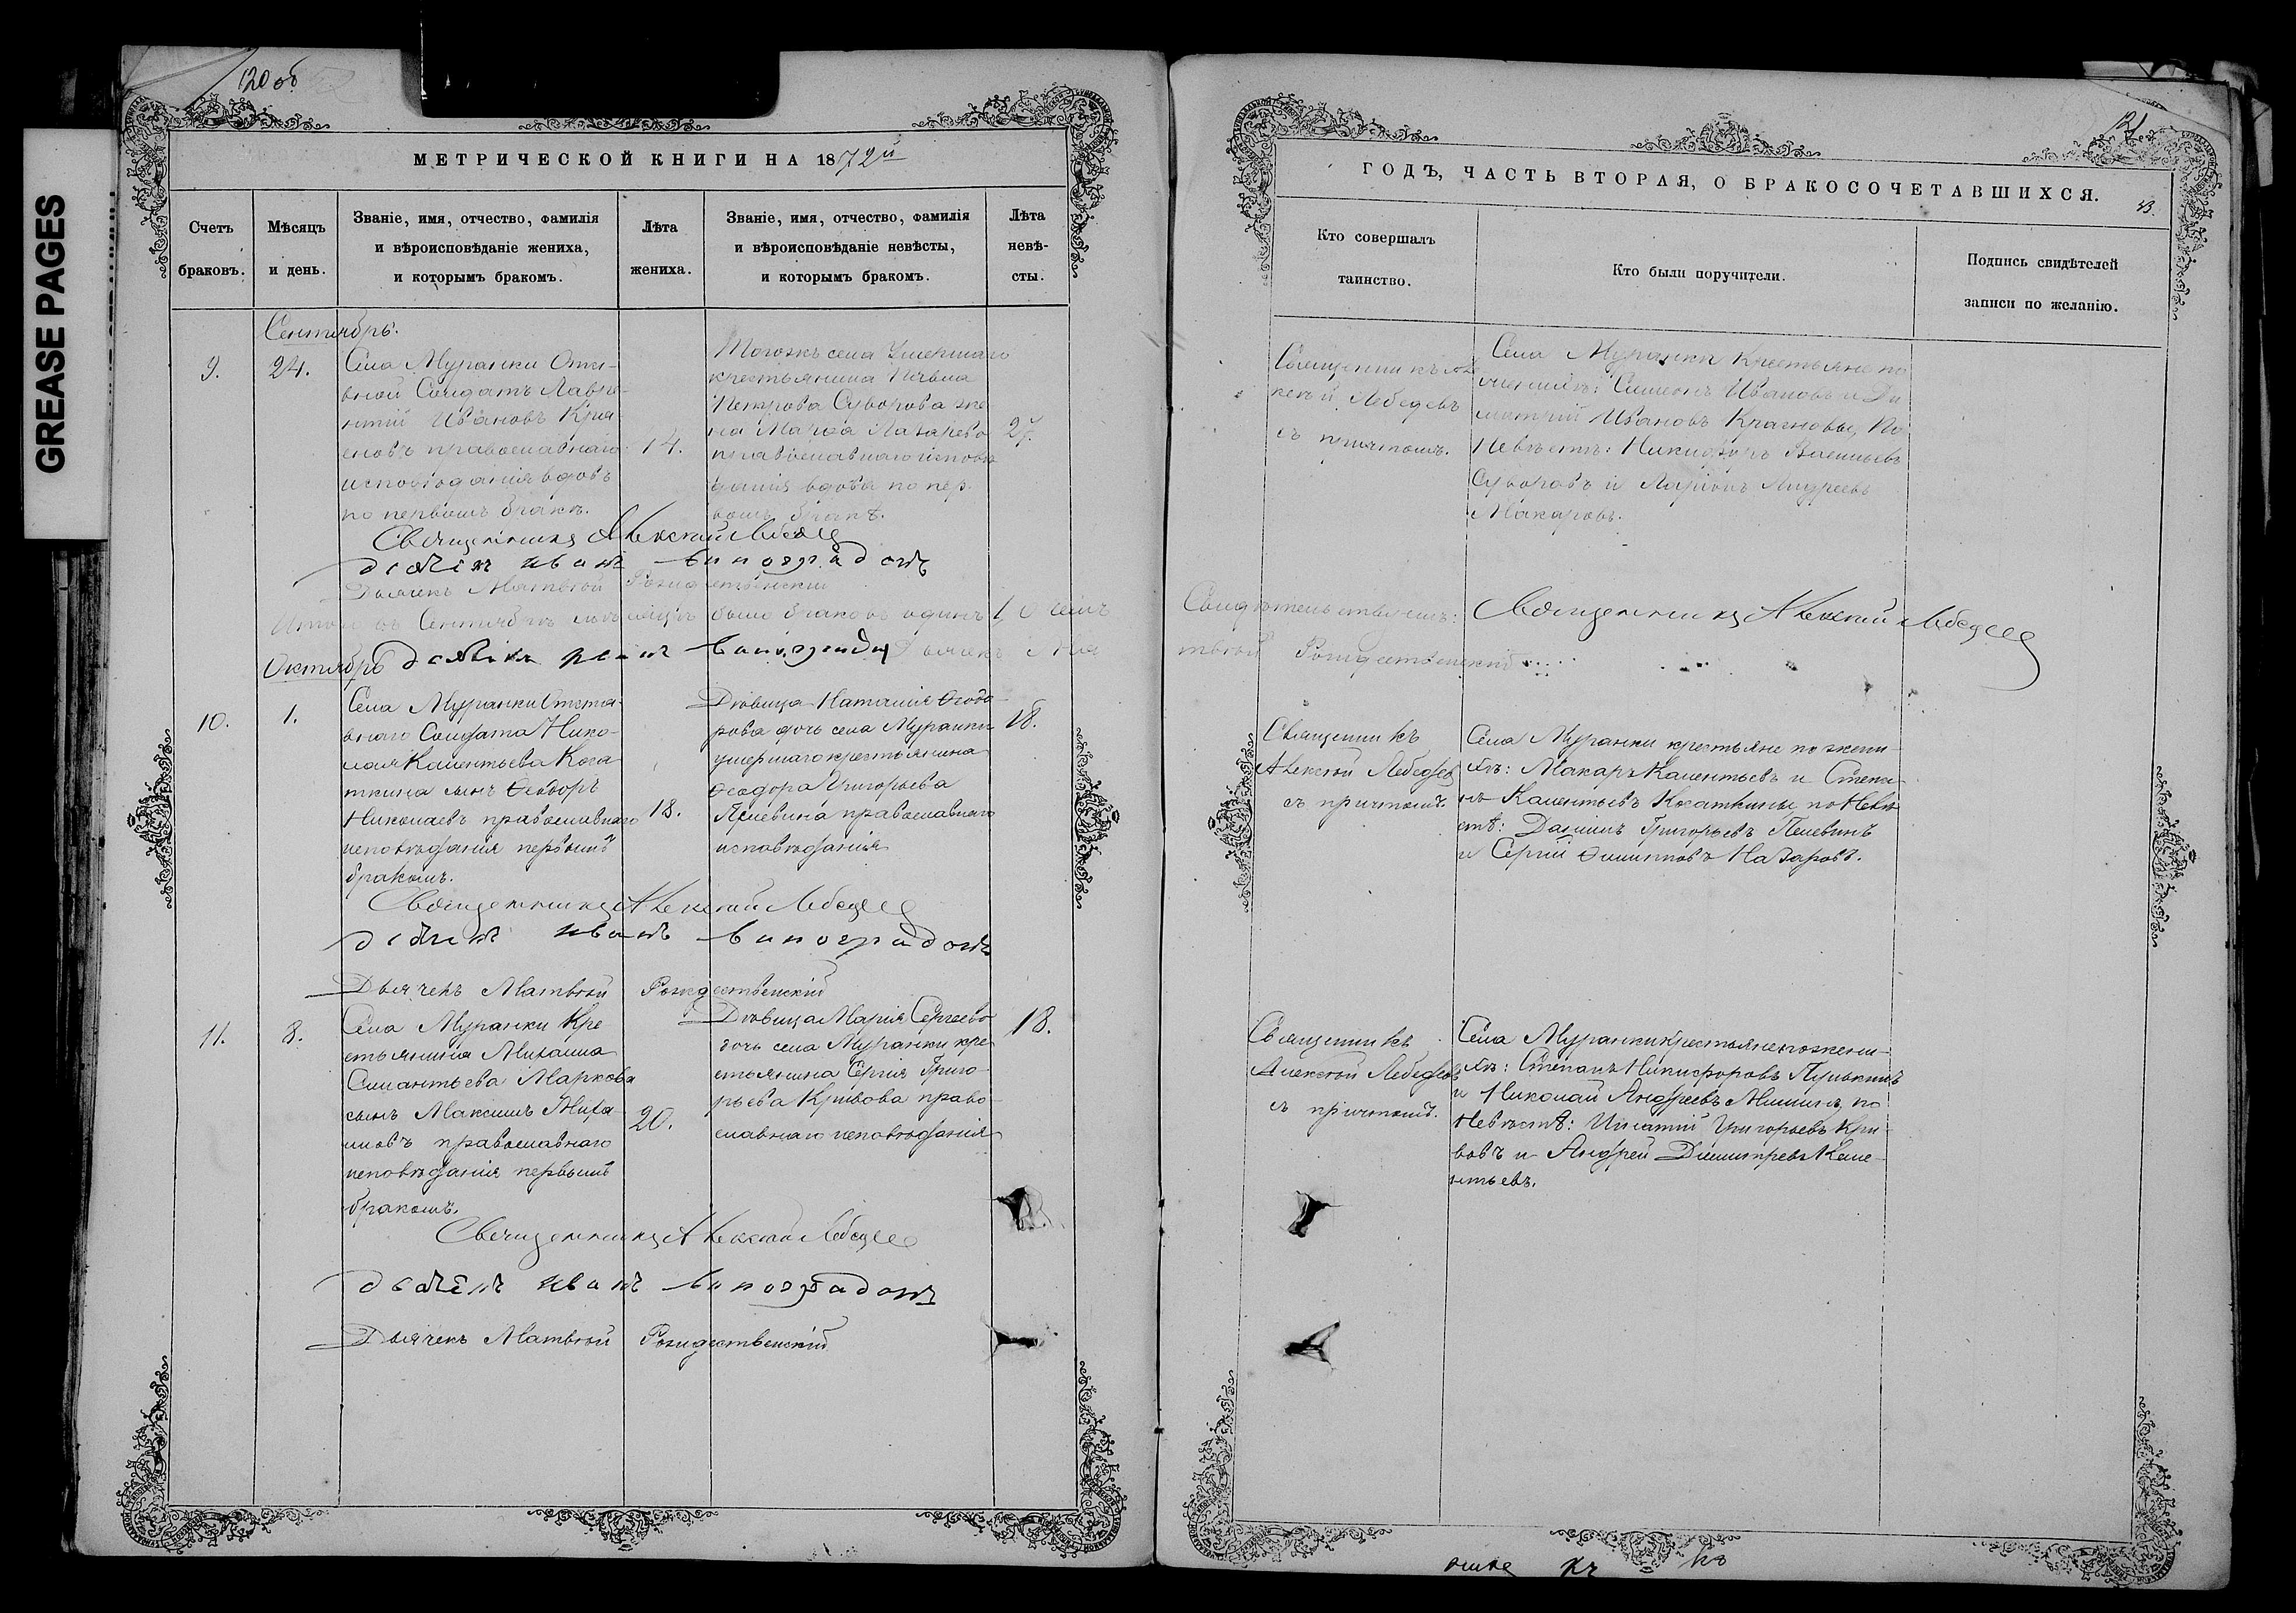 GREASE PAGES
120 об
МЕТРИЧЕСКОЙ КНИГИ НА 1872й
Счетъ браковъ.
Мѣсяцъ и день.
Званіе, имя, отчество, фамилія
и вѣроисповѣданіе жениха,
и которымъ бракомъ.
Лѣта жениха.
Званіе, имя, отчество, фамилія
и вѣроисповѣданіе невѣсты,
и которымъ бракомъ.
Лѣта невѣ-
сты.
Сентябрь.
9.
24.
Села Муранки
вной Солдатъ Лавре-
нтій Ивановъ
православнаго
исповѣданія вдовъ
по первомъ бракѣ.
Тогожъ села Умершаго
крестьянина
Петрова Суворова же
на Марѳа Лазарева
православнаго исповѣ
данія вдова по пер
вомъ бракѣ.
27.
Священникъ Алексѣй Лебедев
Иванъ Виноградовъ
Дьячекъ Матвѣй Рождественскій
Итого въ Сентябрѣ мѣсяцѣ было браковъ одинъ 1, о чемъ
Октябрь
10.
1.
Села Муранки Отста-
внаго Солдата Нико-
лая Калентьева Коса
ткина сынъ Ѳеодоръ
Николаевъ православнаго
исповѣданія первымъ
бракомъ.
18.
Дѣвица Наталия Ѳеодо-
рова дочь села Муранки
умершаго крестьянина
Ѳеодора Григорьева
Пелевина православнаго
исповѣданія
18.
Священникъ Алексѣй Лебедев
Иванъ Виноградовъ
Дьячекъ Матвѣй Рождественскій
11.
8.
Села Муранки Кре
стьянина Михаила
Маркова
сынъ Максимъ Миха
иловъ православнаго
исповѣданія первымъ
бракомъ.
20.
Дѣвица Марія Сергеева
дочь села Муранки кре-
стьянина Сергія Григо-
рьева Кривова право-
славнаго исповѣданія
18.
Священникъ Алексѣй Лебедев
Иванъ Виноградовъ
Дьячекъ Матвѣй Рождественскій
121
ГОДЪ, ЧАСТЬ ВТОРАЯ, О БРАКОСОЧЕТАВШИХСЯ.
Кто совершалъ
таинство.
Кто были поручители.
Подпись свидѣтелей
записи по желанію.
Священникъ Але
ксѣй Лебедевъ
съ причтомъ.
Села Муранки Крестьяне по
женихѣ: Симеонъ Ивановъ и Ди
митрій Ивановъ По
Невѣстѣ: Никифоръ Васильевъ
Суворовъ и Ларіонъ Андреевъ
Макаровъ.
Свидѣтельствуемъ: Священникъ Алексѣй Лебедев
твѣй Рождественскій
Священникъ
Алексѣй Лебедев
съ причтомъ.
Села Муранки крестьяне по жени-
хѣ: Макаръ Калентьевъ и Степа-
нъ Калентьевъ Косаткины по Невѣ
стѣ: Даніилъ Григорьевъ Пелевинъ
и Сергій Филипповъ Назаровъ.
Священникъ
Алексѣй Лебедев
съ причтомъ.
Села Муранки крестьяне по жени-
хѣ: Степанъ Никифоровъ
и Николай Андреевъ Мишинъ, по
Невѣстѣ: Игнатій Григорьевъ Кри-
вовъ и Андрей Димитревъ Кале-
нтьевъ.